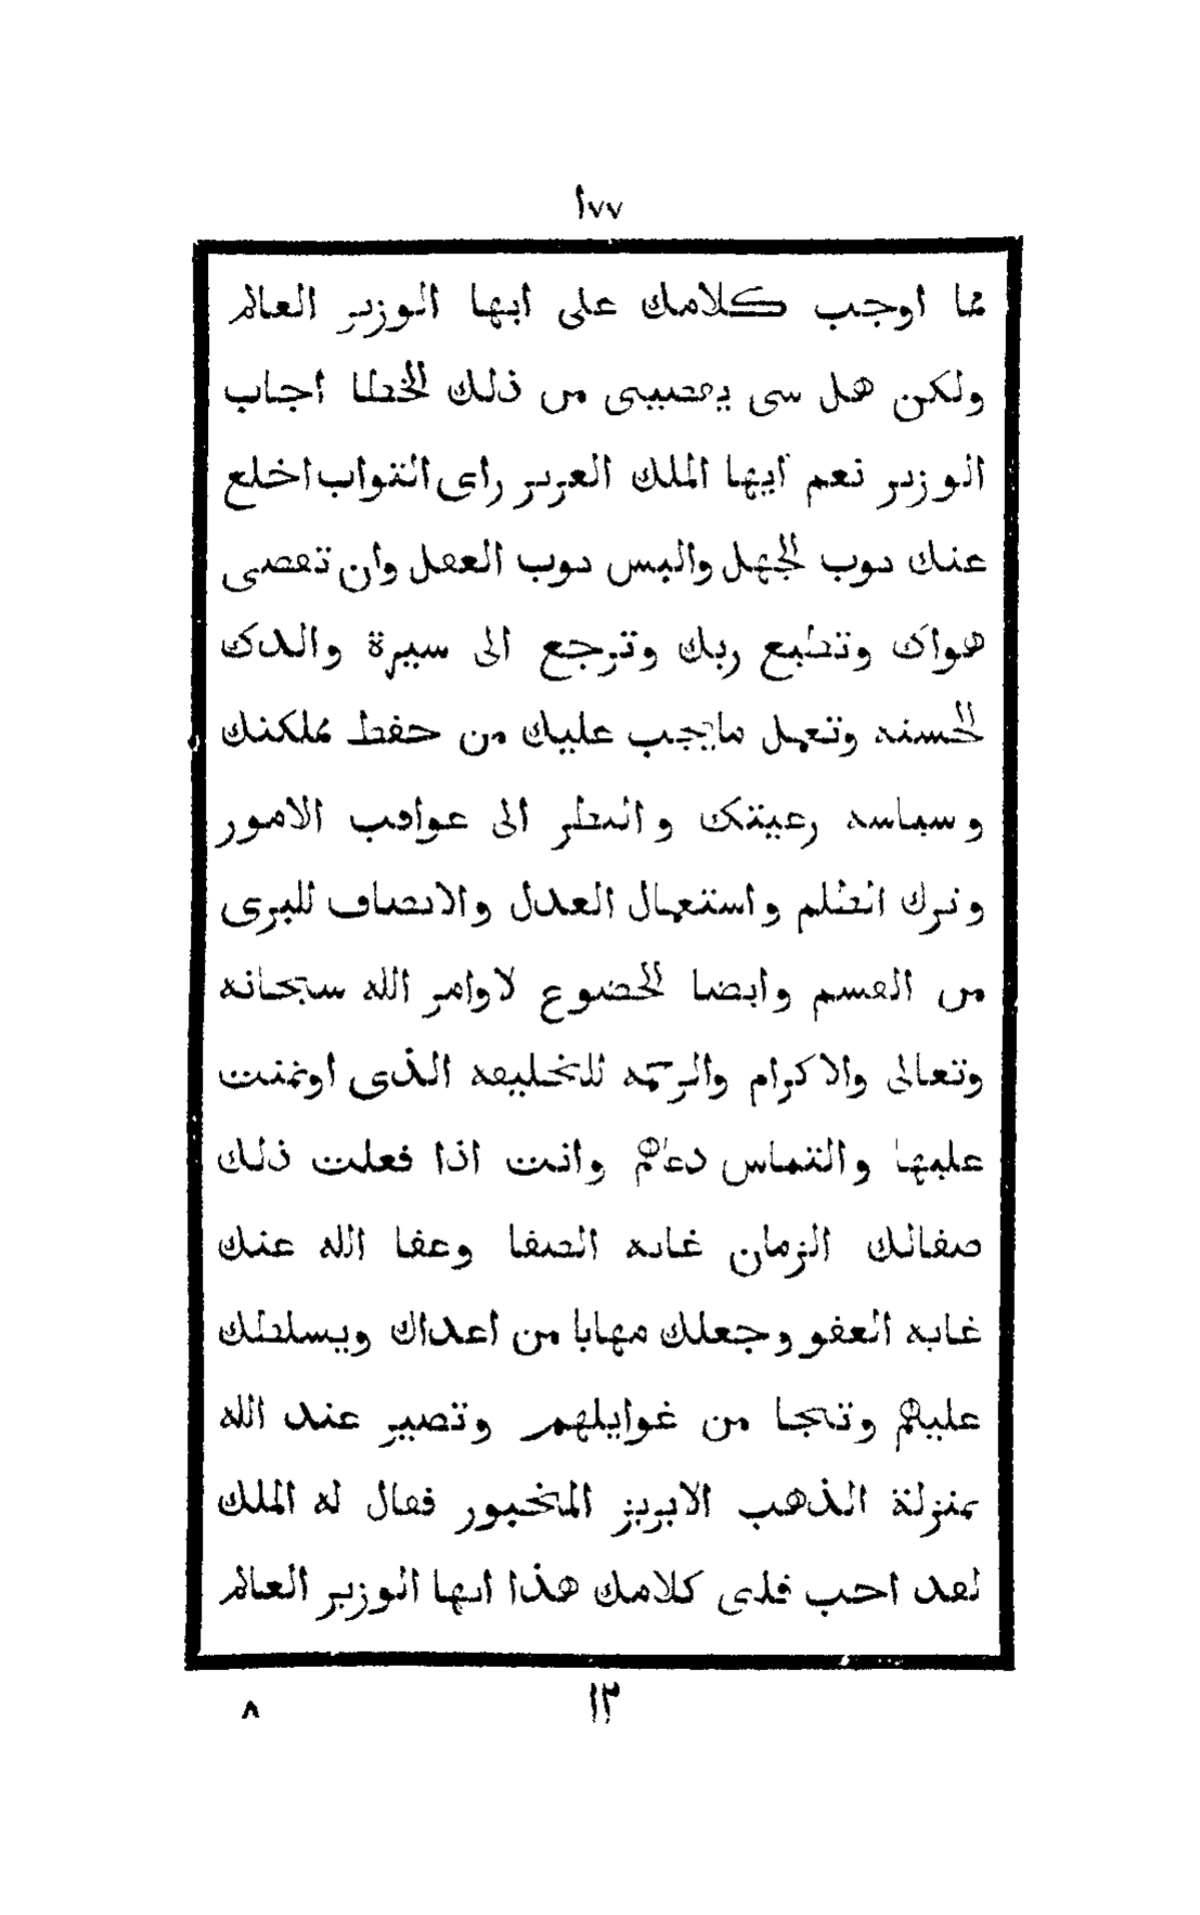 ١٧٧
مما اوجب كلامك على ايها الوزير العالم
ولكن هل شى يعصيبنى من ذلك الخطا اجاب
الوزير نعم ايها الملك العزيز راى الثواب اخلع
عنك ثوب الجهل والبس ثوب العقل وان تعصى
هواك وتطيع ربك وترجع الى سيرة والدك
الحسنه وتعمل مايجب عليك من حفظ مملكتك
وسياسه رعيتك والنظر الى عواقب الامور
وترك الظلم واستعمال العدل والانصاف للبرى
من القسم وايضا الخضوع لاوامر الله سبحانه
وتعالى والاكرام والرحمه للخليقه الذى اوتمنت
عليها والتماس دعاهم وانت اذا فعلت ذلك
صفالك الزمان غايه الصفا وعفا الله عنك
غايه العفو وجعلك مهابا من اعداك ويسلطك
عليهم وتنجا من غوايلهم وتصير عند الله
بمنزلة الذهب الابريز المخبور فقال له الملك
لقد احب قلبى كلامك هذا ايها الوزير العالم
١٢
٨